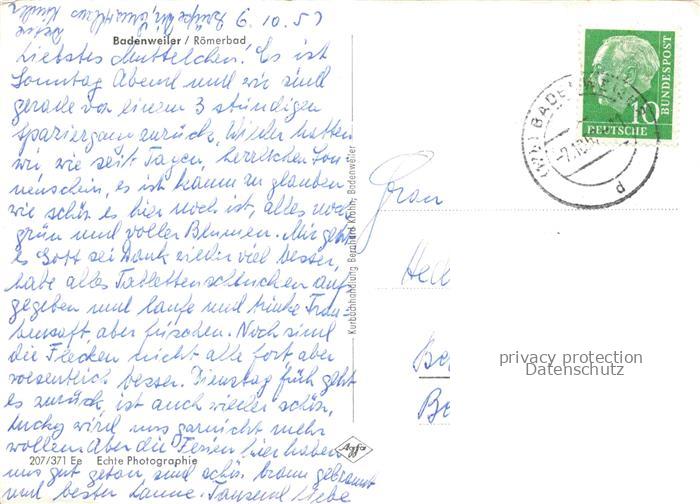 6.10.57
Badenweiler / Römerbad
Liebstes Muttelchen! Es ist
Sonntag Abend und wir sind
gerade von einem 3 stündigen
Spaziergang zurück. Wieder hatten
wir, wie seit Tagen, herrlichen Son
nenschein, es ist kaum zu glauben
wie schön es hier noch ist, alles noch
grün und voller Blumen. Mir geht
es Gott sei Dank wieder viel besser,
habe alles Tablettenschlucken auf
gegeben und laufe und trinke Trau
bensaft aber frischen. Noch sind
die Flecken nicht alle fort, aber
wesentlich besser. Dienstag früh geht
es zurück, ist auch wieder schön,
Lucky wird uns garnicht mehr
wollen. Aber die Ferien hier haben
uns gut getan sind schön braun gebrannt
und bester Laune. Tausend liebe
207/371 Ee Echte Photographie
Kurbuchhandlung Bernhard Krohn, Badenweiler
Agfa
10
DEUTSCHE
BUNDESPOST
BADENWEILER
d
Frau
privacy protection
Datenschutz